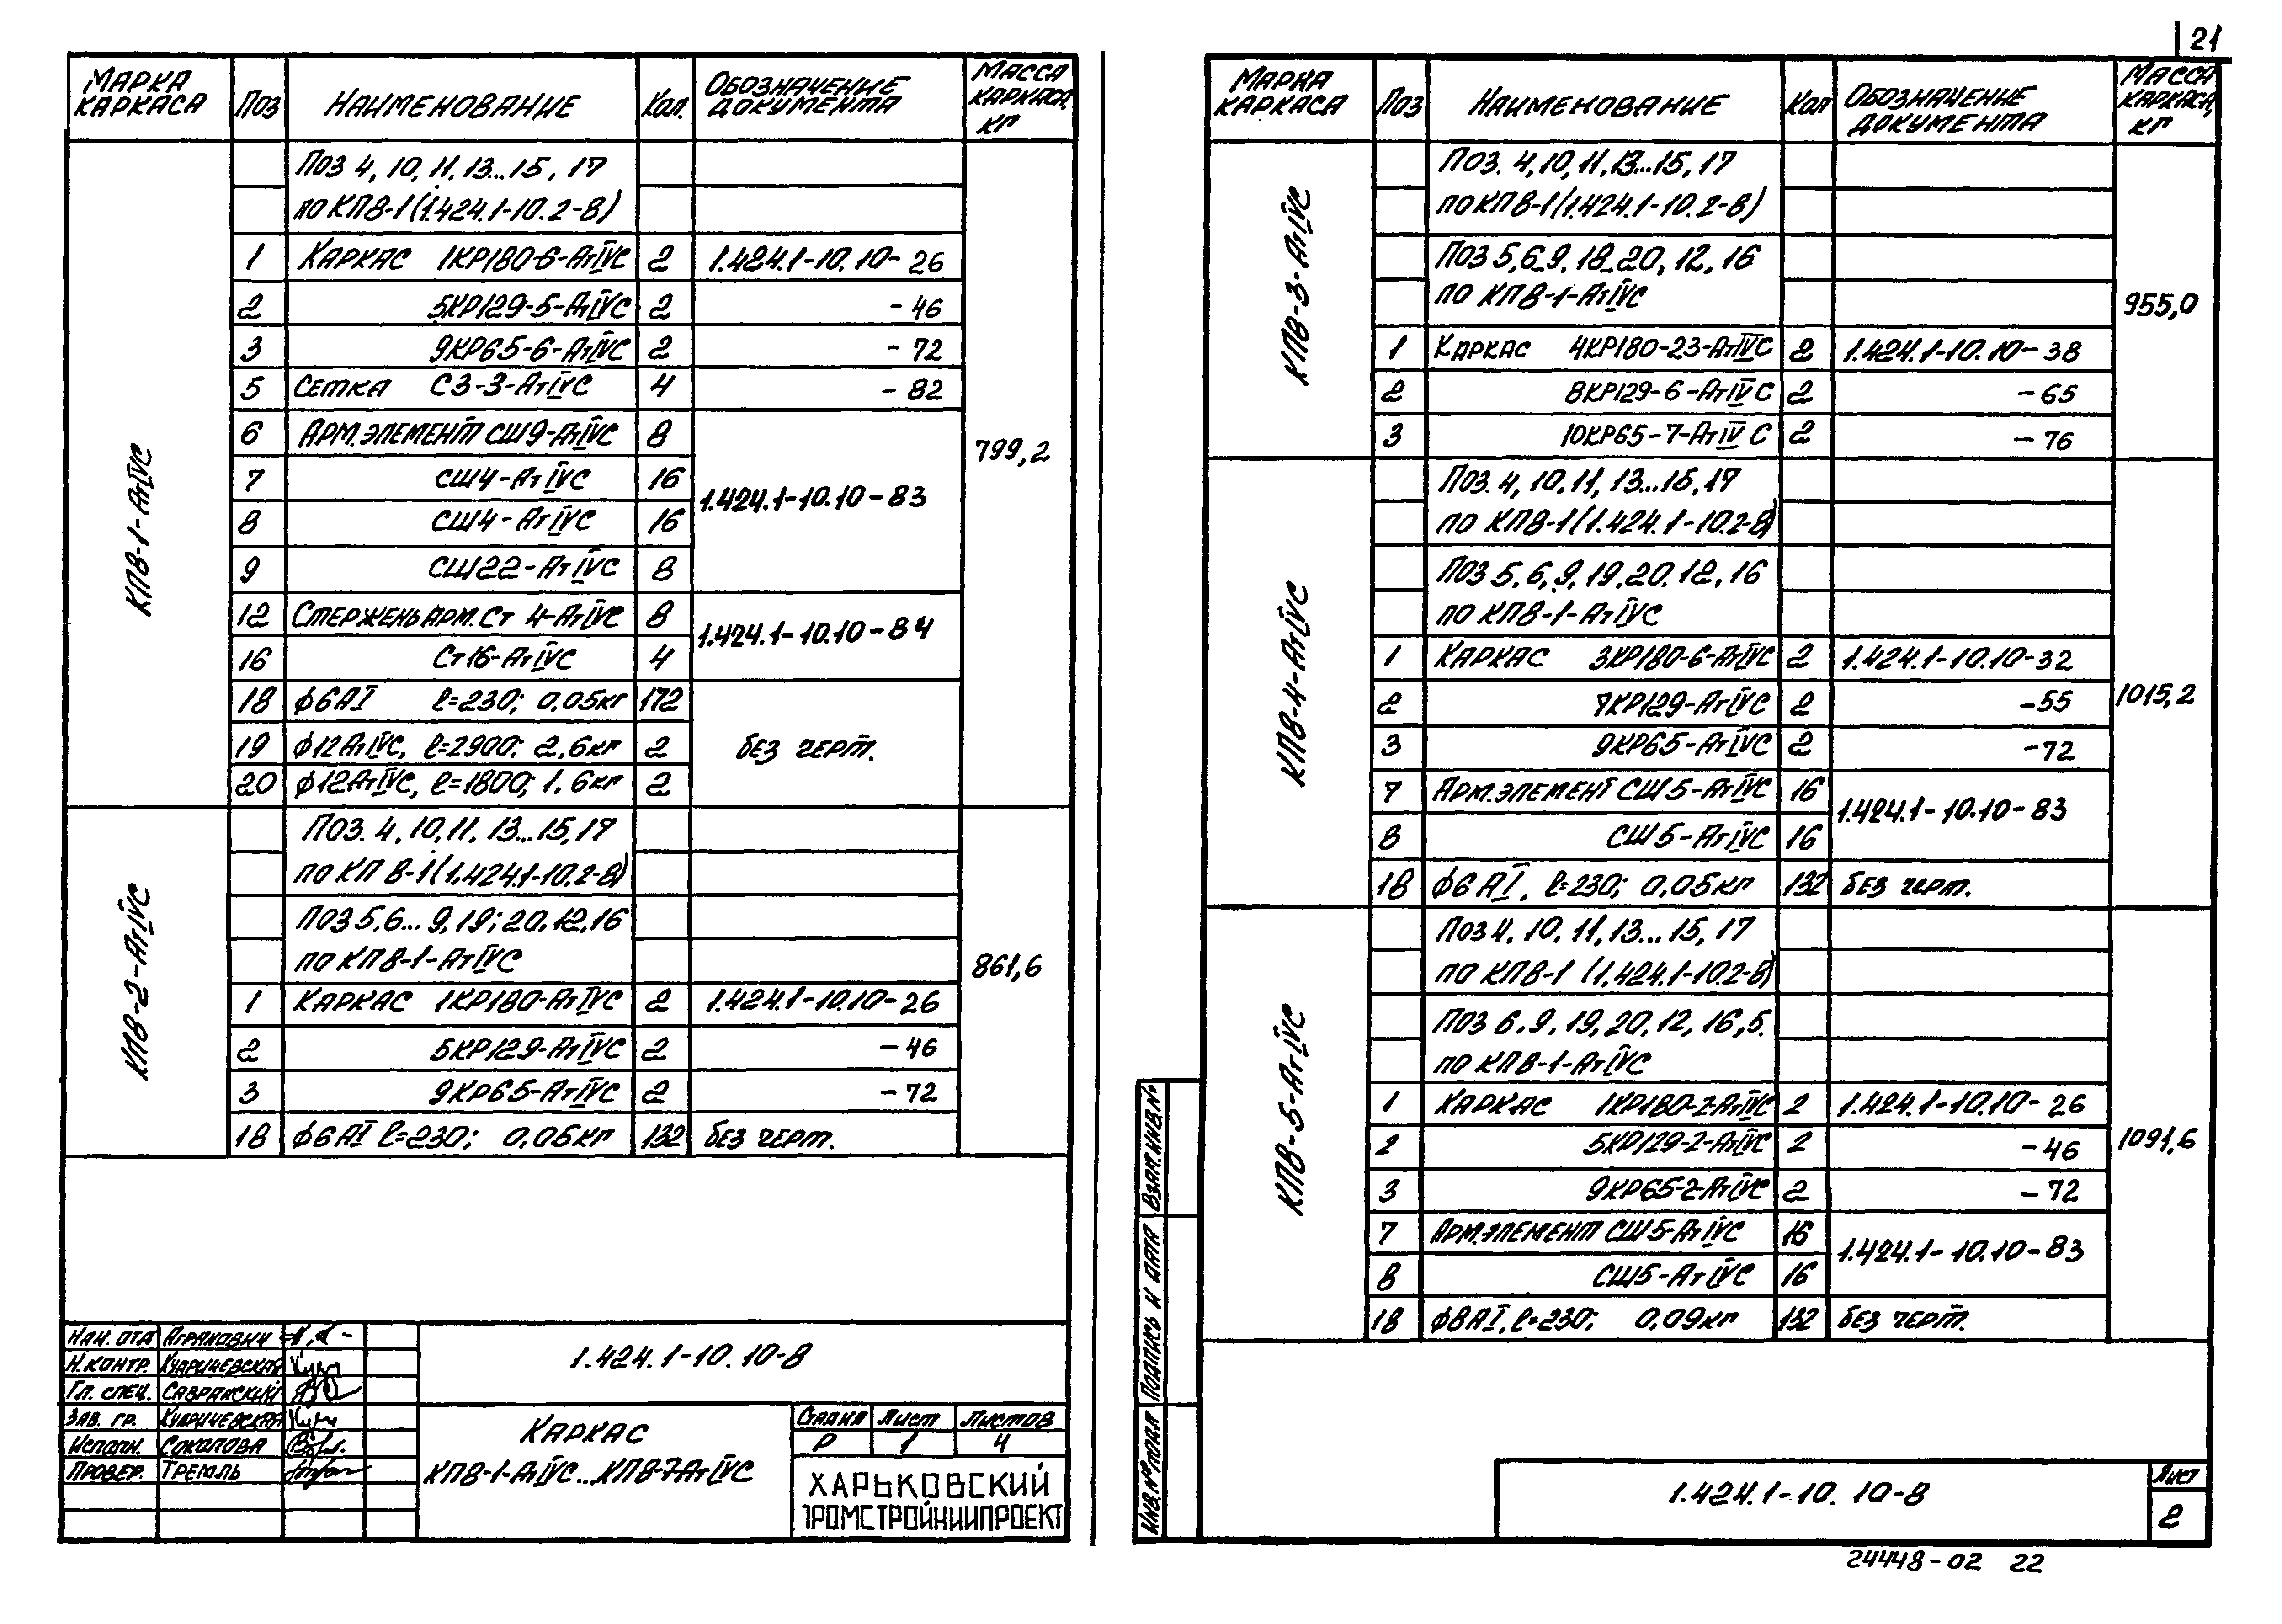 21
МАРКА КАРКАСА ПОЗ НАИМЕНОВАНИЕ КОЛ. ОБОЗНАЧЕНИЕ ДОКУМЕНТА МАССА КАРКАСА, КГ
КП8-1-АтIVС
ПОЗ 4, 10, 11, 13...15, 17
по КП8-1 (1.424.1-10.2-8)
1 КАРКАС 1КР180-6-АтIVС 2 1.424.1-10.10-26
2 5КР129-5-АтIVС 2 -46
3 9КР65-6-АтIVС 2 -72
5 СЕТКА С3-3-АтIVС 4 -82
6 АРМ.ЭЛЕМЕНТ СШ9-АтIVС 8
7 СШ4-АтIVС 16
799,2
1.424.1-10.10-83
8 СШ4-АтIVС 16
9 СШ22-АтIVС 8
12 СТЕРЖЕНЬ АРМ. Ст 4-АтIVС 8
1.424.1-10.10-84
16 Ст16-АтIVС 4
18 ф6АI ℓ=230; 0,05кг 172
19 ф12АтIVС, ℓ=2900; 2,6кг 2 БЕЗ ЧЕРТ.
20 ф12АтIVС, ℓ=1800; 1,6кг 2
КП8-2-АтIVС
ПОЗ. 4, 10, 11, 13...15, 17
по КП 8-1 (1.424.1-10.2-8)
ПОЗ 5, 6... 9, 19; 20, 12, 16
по КП8-1-АтIVС
861,6
1 КАРКАС 1КР180-АтIVС 2 1.424.1-10.10-26
2 5КР129-АтIVС 2 -46
3 9КР65-АтIVС 2 -72
18 ф6АI ℓ=230; 0,05кг 132 БЕЗ ЧЕРТ.
НАЧ. ОТД АГРАНОВИЧ
Н.КОНТР. КУДРИЧЕВСКАЯ
ГЛ. СПЕЦ. САВРАНСКИЙ
ЗАВ. ГР. КУДРИЧЕВСКАЯ
ИСПОЛН. СОКОЛОВА
ПРОВЕР. ТРЕМЛЬ
1.424.1-10.10-8
КАРКАС
КП8-1-АтIVС...КП8-7АтIVС
СТАДИЯ ЛИСТ ЛИСТОВ
Р 1 4
ХАРЬКОВСКИЙ
ПРОМСТРОЙНИИПРОЕКТ
МАРКА КАРКАСА ПОЗ НАИМЕНОВАНИЕ КОЛ ОБОЗНАЧЕНИЕ ДОКУМЕНТА МАССА КАРКАСА, КГ
КП8-3-АтIVС
ПОЗ. 4, 10, 11, 13...15, 17
по КП8-1 (1.424.1-10.2-8)
ПОЗ 5, 6-9, 18-20, 12, 16
по КП8-1-АтIVС
955,0
1 КАРКАС 4КР180-23-АтIVС 2 1.424.1-10.10-38
2 8КР129-6-АтIVС 2 -65
3 10КР65-7-АтIVС 2 -76
КП8-4-АтIVС
ПОЗ. 4, 10, 11, 13...15, 17
по КП8-1 (1.424.1-10.2-8)
ПОЗ 5, 6, 9, 19, 20, 12, 16
по КП8-1-АтIVС
1 КАРКАС 3КР180-6-АтIVС 2 1.424.1-10.10-32
1015,2
2 7КР129-АтIVС 2 -55
3 9КР65-АтIVС 2 -72
7 АРМ.ЭЛЕМЕНТ СШ5-АтIVС 16
1.424.1-10.10-83
8 СШ5-АтIVС 16
18 ф6АI, ℓ=230; 0,05кг 132 БЕЗ ЧЕРТ.
КП8-5-АтIVС
ПОЗ 4, 10, 11, 13...15, 17
по КП8-1 (1.424.1-10.2-8)
ПОЗ 6, 9, 19, 20, 12, 16, 5.
по КП8-1-АтIVС
1 КАРКАС 1КР180-2-АтIVС 2 1.424.1-10.10-26
2 5КР129-2-АтIVС 2 -46
1091,6
3 9КР65-2-АтIVС 2 -72
7 АРМ.ЭЛЕМЕНТ СШ5-АтIVС 16
1.424.1-10.10-83
8 СШ5-АтIVС 16
18 ф8АI, ℓ=230; 0,09кг 132 БЕЗ ЧЕРТ.
ВЗАМ.ИНВ.№
ПОДПИСЬ И ДАТА
ИНВ.№ПОДЛ
1.424.1-10.10-8
ЛИСТ
2
24448-02 22